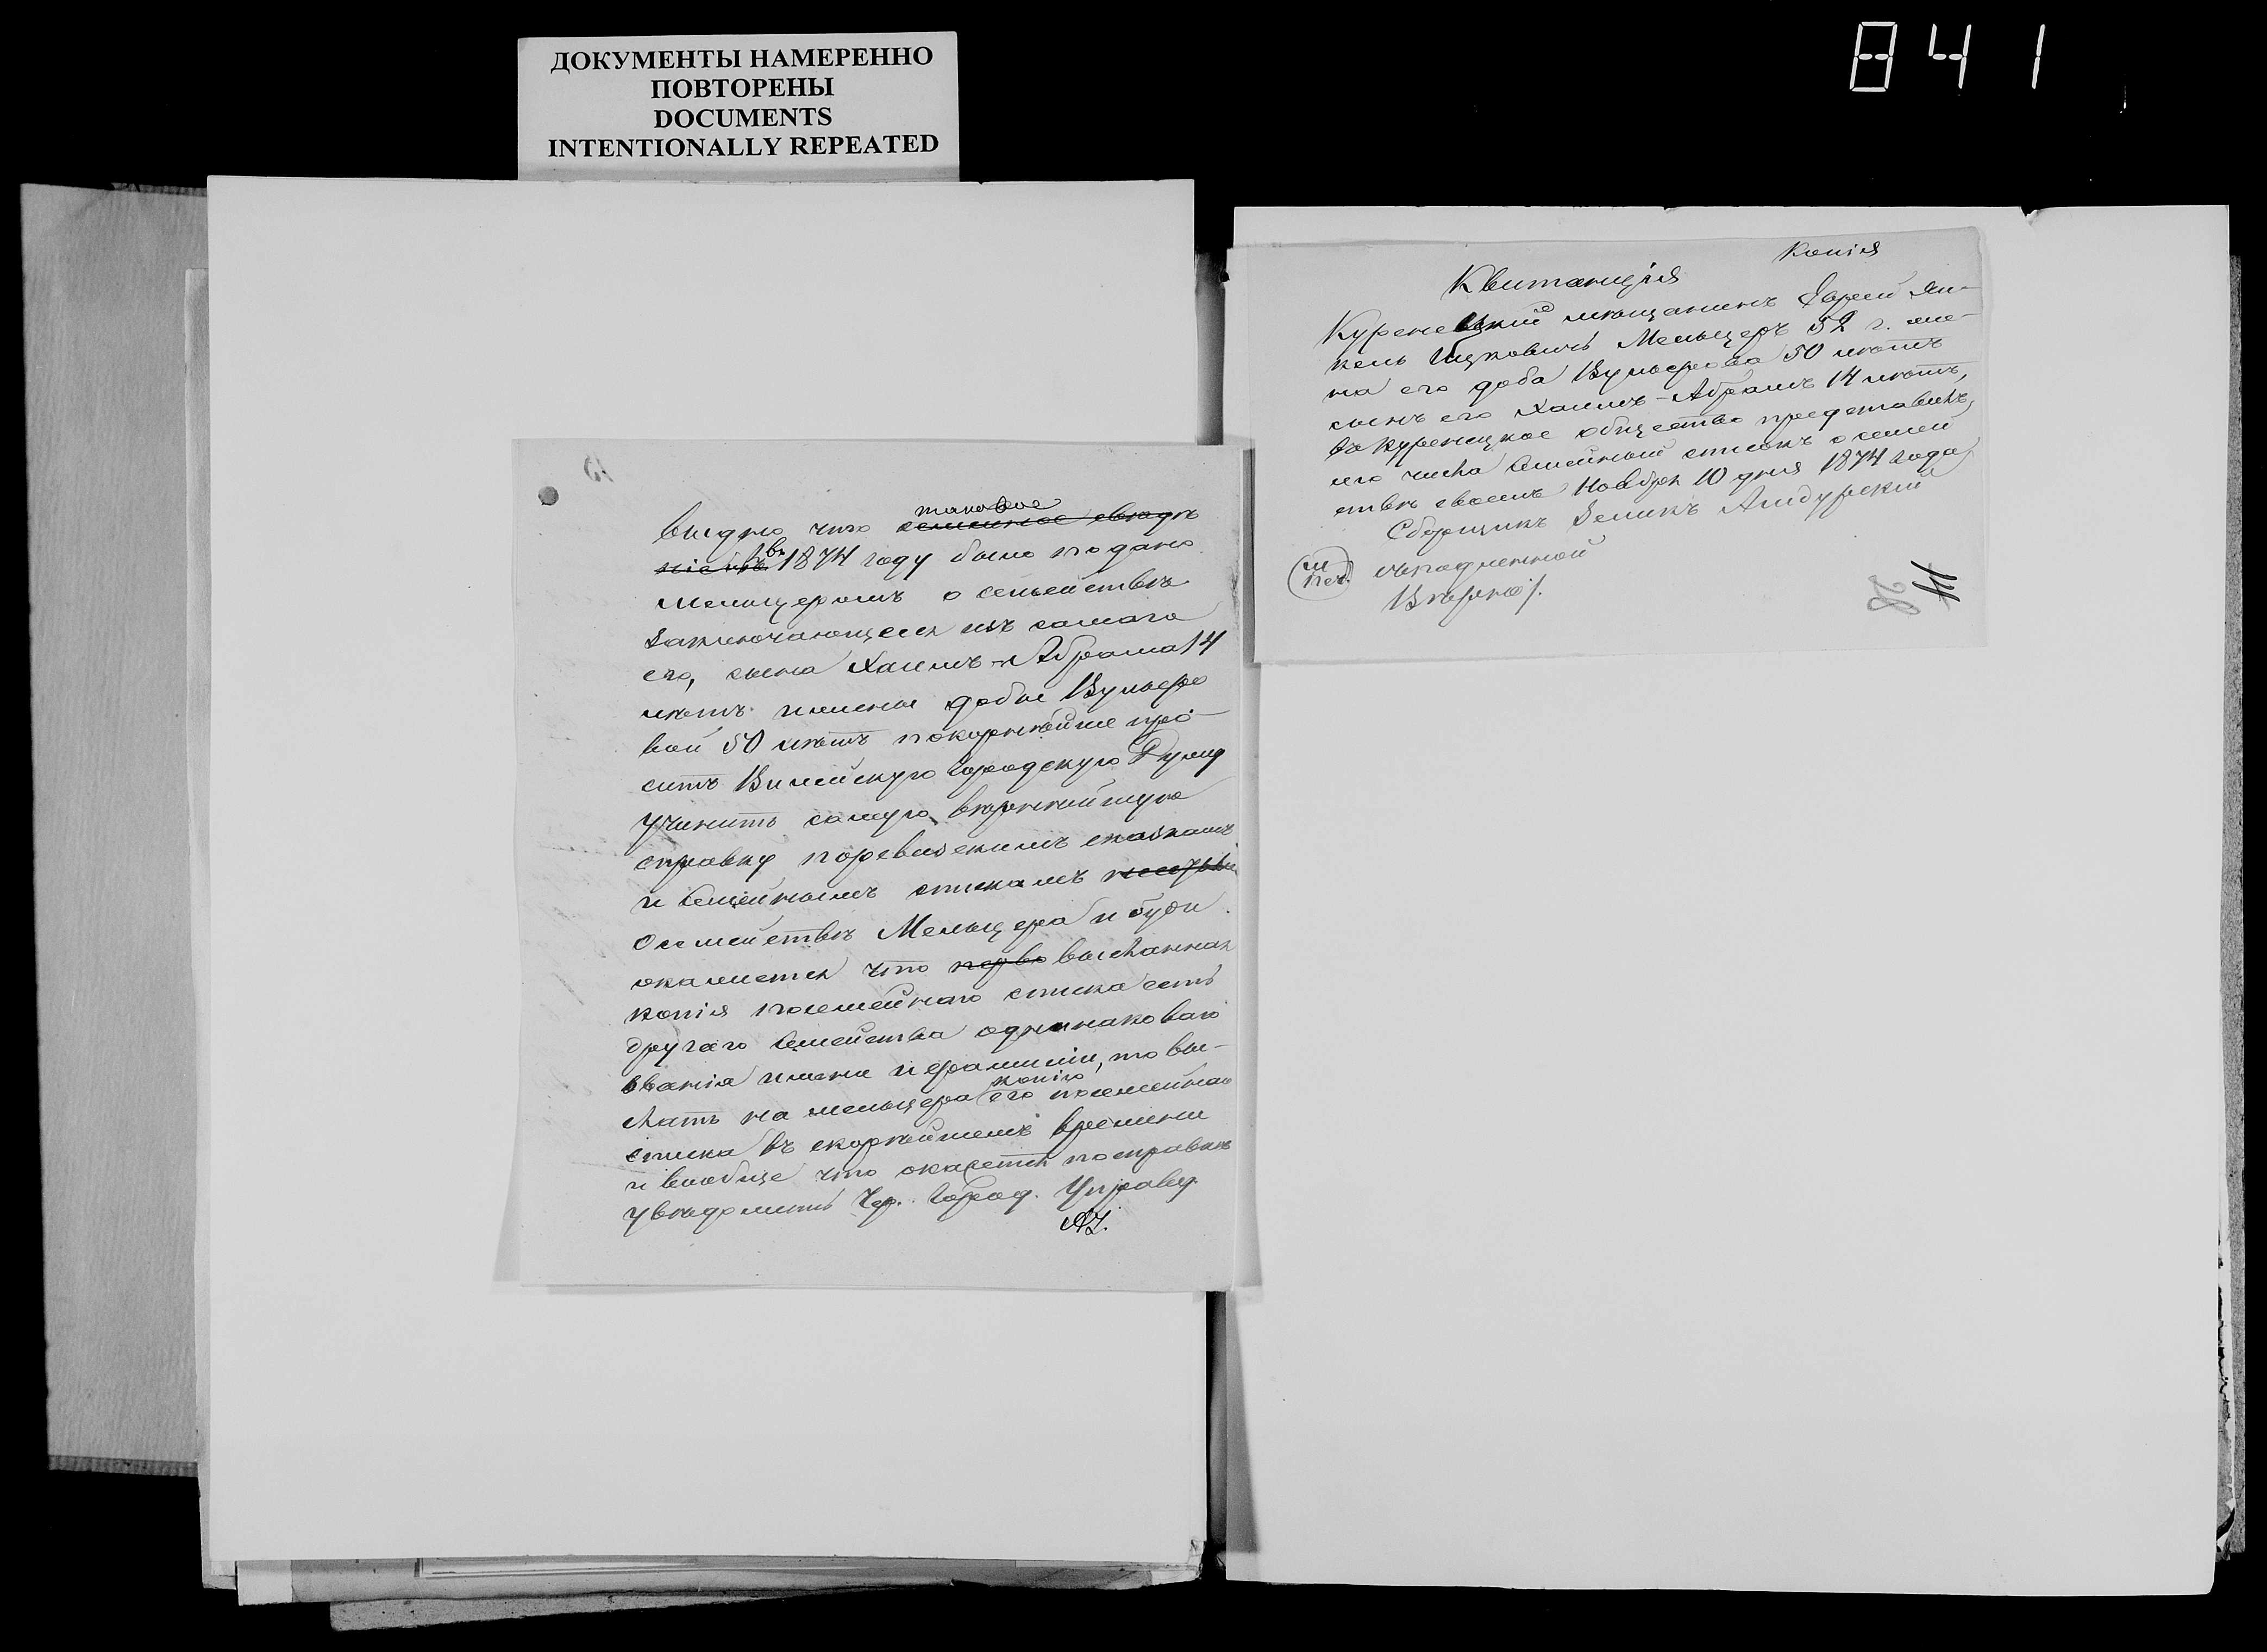 ДОКУМЕНТЫ НАМЕРЕННО
ПОВТОРЕНЫ
DOCUMENTS
INTENTIONALLY REPEATED
841
таковое
видно что семейное сведѣ
ніе въ 1874 году было подано
Мельцеромъ о семействѣ
заключающееся изъ самаго
его, сына Хаимъ-Абрама 14
лѣтъ и жены Добы Вульфо
вой 50 лѣтъ покорнѣйше про-
ситъ Вилейскую Городскую Думу
учинить самую вѣрнѣйшую
справку по ревизскимъ сказкамъ
и семейнымъ спискамъ
о семействѣ Мельцера и буди
окажется что перво высланная
копія посемейнаго списка есть
другаго семейства одинаковаго
званія имени и фамиліи, то вы-
копію
слать на Мельцера его посемейнаго
списка въ скорѣйшемъ времени
и вообще что окажется по справкѣ
увѣдомить Гор. Управу.
Копія
Квитанція
Куренецкій мѣщанинъ Еврей Ян-
кель Ицковичъ Мельцеръ 52 г. же-
на его Доба Вульфова 50 лѣтъ
сынъ его Хаимъ-Абрамъ 14 лѣтъ,
въ Куренецкое общество представилъ,
его числа семейный списокъ о семей
ствѣ своемъ Ноября 10 дня 1874 года,
Сборщикъ Зеликъ Алидурский
м
печ.
съ подлинной
Вѣрно.
28
41